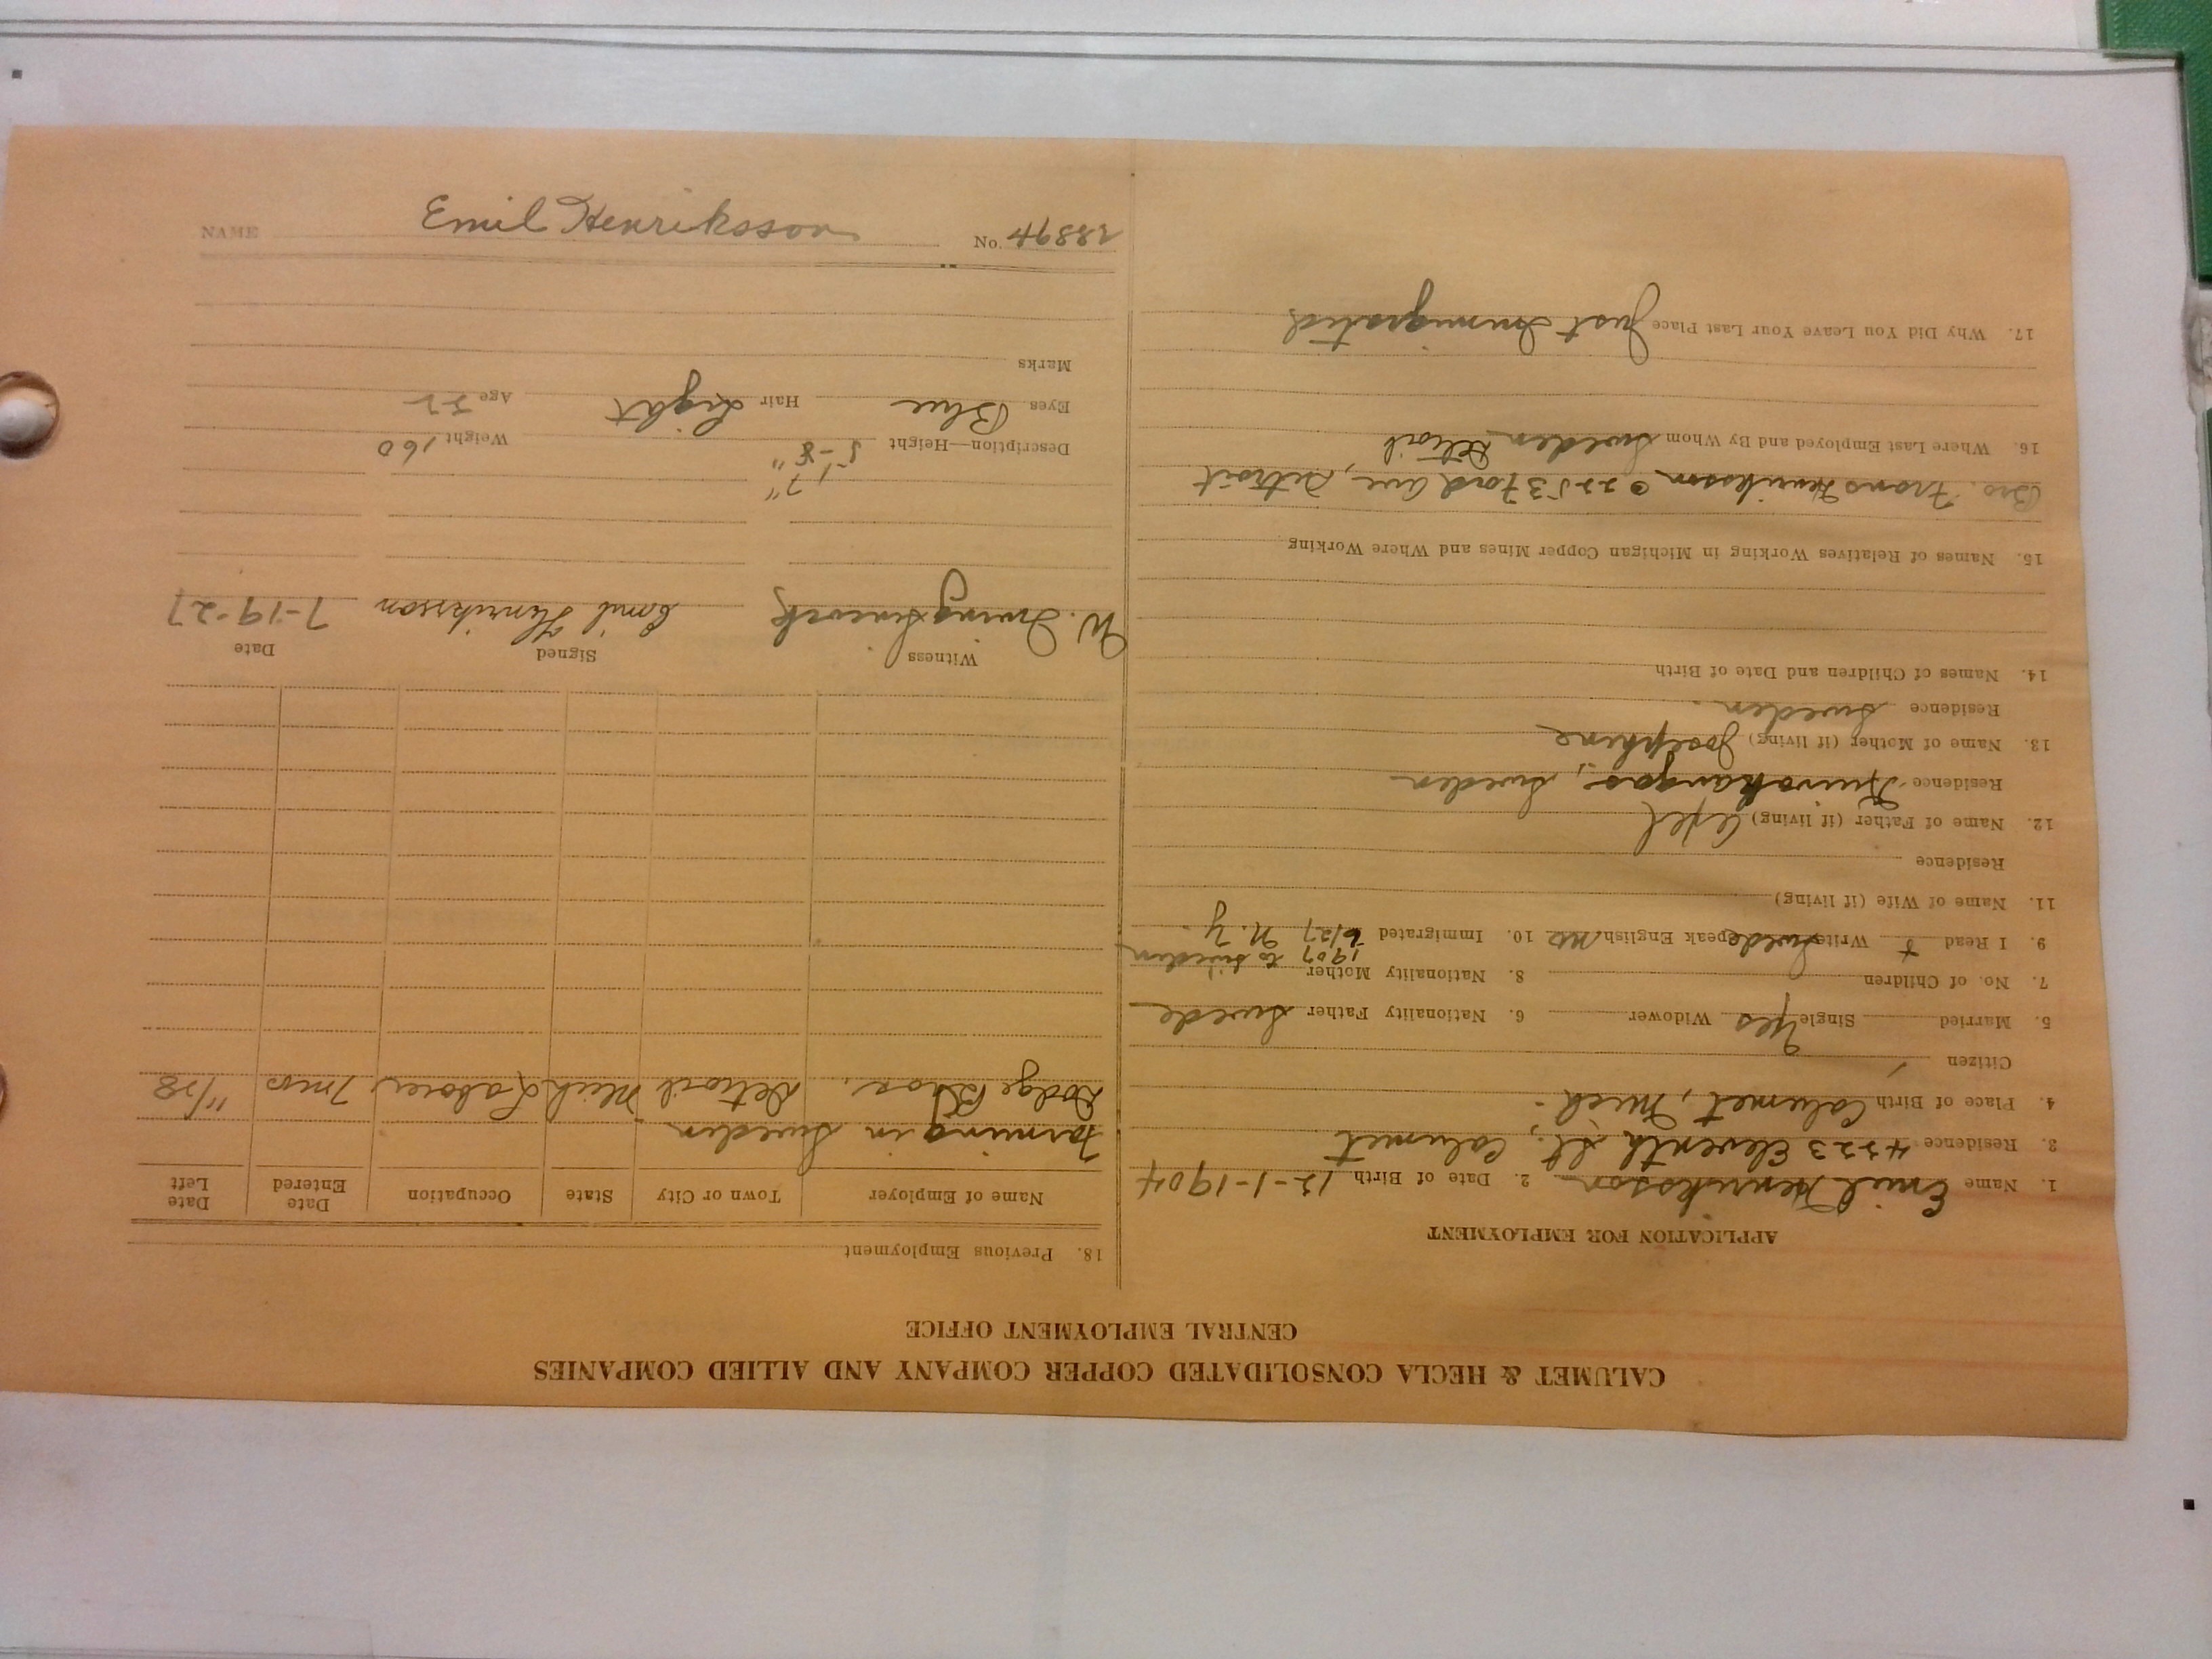 CALUMET & HECLA CONSOLIDATED COPPER COMPANY AND ALLIED COMPANIES
CENTRAL EMPLOYMENT OFFICE
APPLICATION FOR EMPLOYMENT
1. Name Emil Henriksson 2. Date of Birth 12-1-1904
3. Residence 4323 Eleventh St., Calumet
4. Place of Birth Calumet, Mich.
Citizen
5. Married Single Yes Widower 6. Nationality Father Swede
7. No. of Children 8. Nationality Mother
1907 to Sweden
9. I Read + Write Swede Speak English no 10. Immigrated 6/27 N.Y.
11. Name of Wife (if living)
Residence
12. Name of Father (if living) Axel
Residence Sweden
13. Name of Mother (if living) Josephine
Residence Sweden
14. Names of Children and Date of Birth
15. Names of Relatives Working in Michigan Copper Mines and Where Working
Bro. Frans Henriksson 2253 Ford Ave, Detroit
Detroit
16. Where Last Employed and By Whom Sweden
17. Why Did You Leave Your Last Place Just Immigrated
18. Previous Employment
Name of Employer Town or City State Occupation Date Entered Date Left
Farming in Sweden
Dodge Bros. Detroit Mich Laborer 7 mos 11/28
Witness Signed Date
W. Irving Emil Henriksson 7-19-27
7"
Description—Height 5-8" Weight 160
Eyes Blue Hair Light Age 22
Marks
NAME Emil Henriksson No.